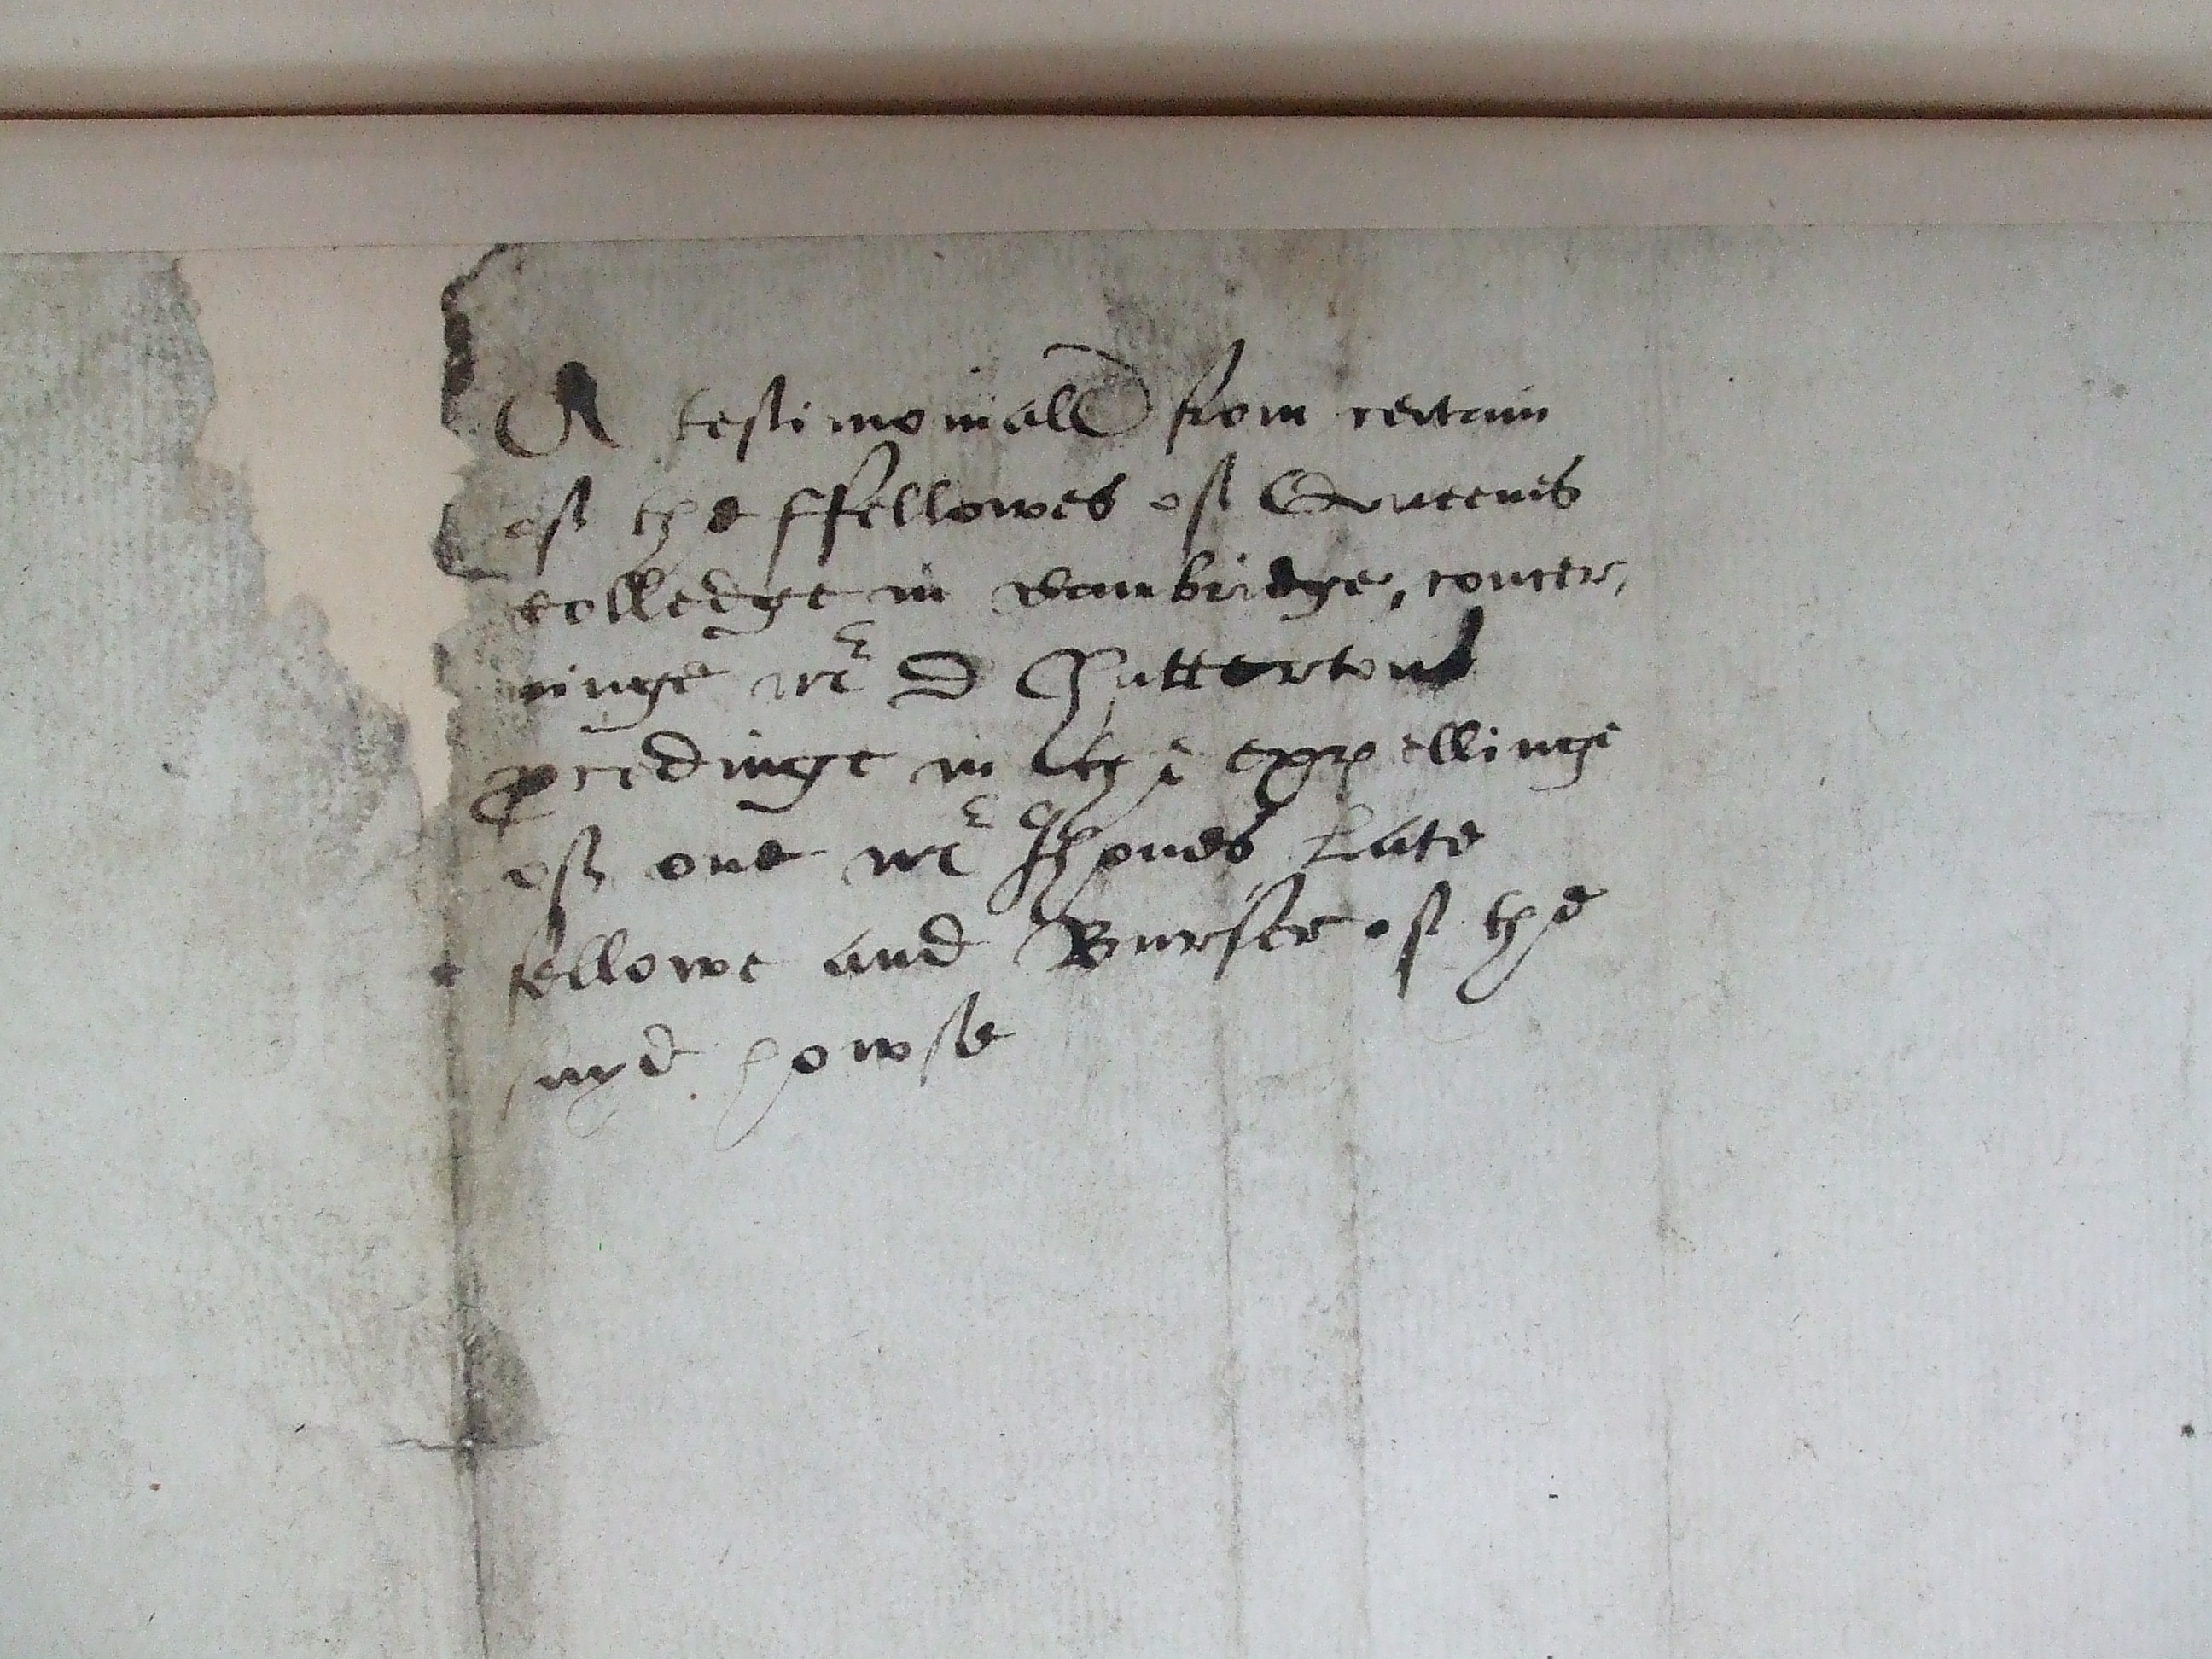 A testimoniall from certain
of the ffellowes of Queenes
colledge in Cambridge, concer,
ninge Mr D Chatterton
procedinge in the expellinge
of one Mr Jhones late
fellowe and Burser of the
sayd howse